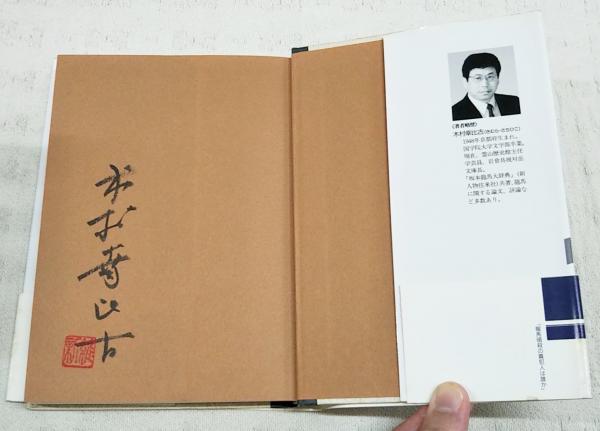 木村幸比古
〈著者略歴〉
木村幸比古(きむら・さちひこ)
1948年京都府生まれ。
国学院大学文学部卒業。
現在、霊山歴史館主任
学芸員、岩倉具視対岳
文庫長。
『坂本龍馬大辞典』(新
人物往来社)共著、龍馬
に関する論文、評論な
ど多数あり。
「龍馬暗殺の真犯人は誰か」